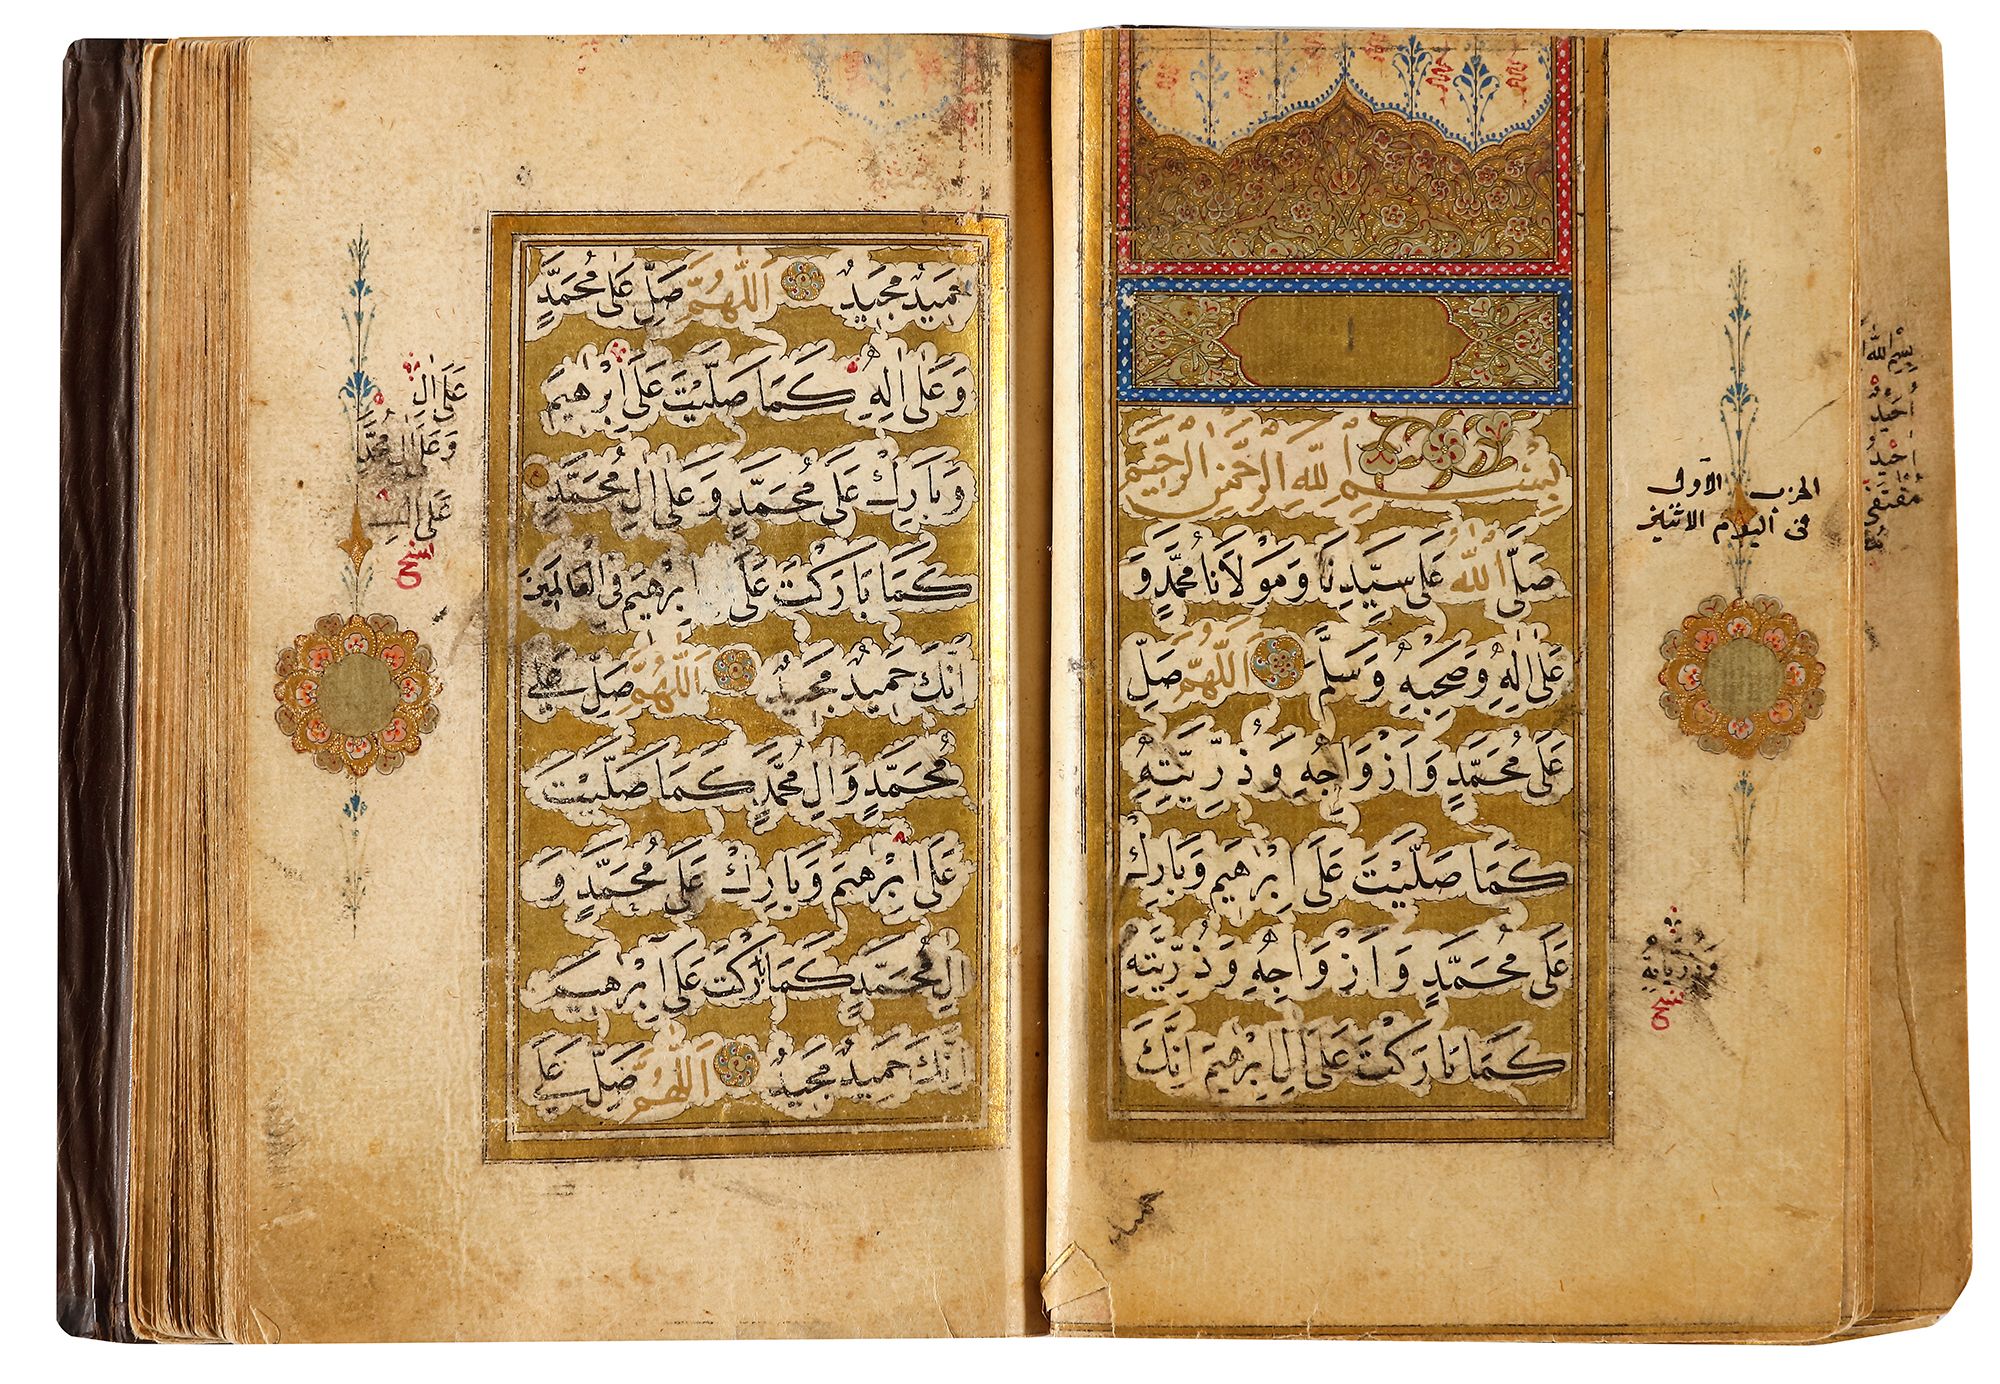 بِسْمِ اللهِ الرَّحْمٰنِ الرَّحِيْمِ
صَلَّى اللّٰهُ عَلَى سَيِّدِنَا وَمَوْلَانَا مُحَمَّدٍ وَ
عَلَى اٰلِهٖ وَصَحْبِهٖ وَسَلَّمَ اَللّٰهُمَّ صَلِّ
عَلَى مُحَمَّدٍ وَاَزْوَاجِهٖ وَذُرِّيَّتِهٖ
كَمَا صَلَّيْتَ عَلَى اِبْرٰهِيمَ وَبَارِكْ
عَلَى مُحَمَّدٍ وَاَزْوَاجِهٖ وَذُرِّيَّتِهٖ
كَمَا بَارَكْتَ عَلَى اٰلِ اِبْرٰهِيمَ اِنَّكَ
الحزب الأول
فى اليوم الاثنين
بِسْمِ اللّٰهِ
اُحِيْدُ
حميد
حَمِيْدٌ مَجِيْدٌ اَللّٰهُمَّ صَلِّ عَلَى مُحَمَّدٍ
وَعَلَى اٰلِهٖ كَمَا صَلَّيْتَ عَلَى اِبْرٰهِيمَ
وَبَارِكْ عَلَى مُحَمَّدٍ وَعَلَى اٰلِ مُحَمَّدٍ
كَمَا بَارَكْتَ عَلَى اِبْرٰهِيمَ فِى الْعَالَمِيْنَ
اِنَّكَ حَمِيْدٌ مَجِيْدٌ اَللّٰهُمَّ صَلِّ عَلَى
مُحَمَّدٍ وَاٰلِ مُحَمَّدٍ كَمَا صَلَّيْتَ
عَلَى اِبْرٰهِيمَ وَبَارِكْ عَلَى مُحَمَّدٍ وَ
اٰلِ مُحَمَّدٍ كَمَا بَارَكْتَ عَلَى اِبْرٰهِيمَ
اِنَّكَ حَمِيْدٌ مَجِيْدٌ اَللّٰهُمَّ صَلِّ عَلَى
عَلَى اٰلِ
وَعَلَى اٰلِ مُحَمَّدٍ